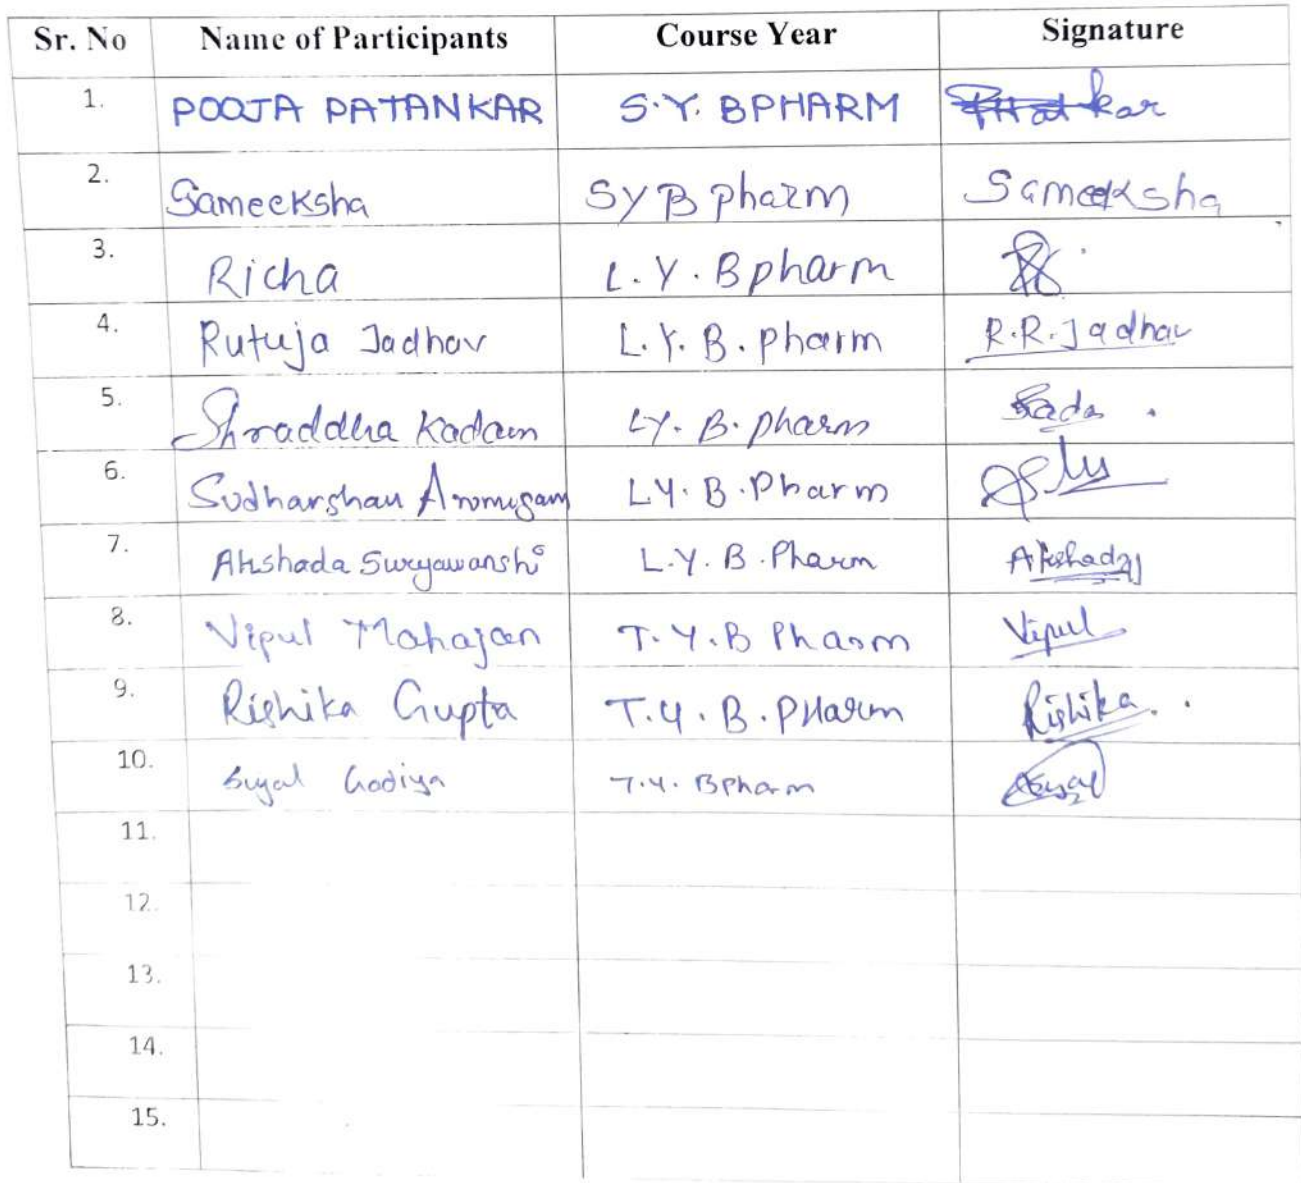 Sr. No Name of Participants Course Year Signature
1. POOJA PATANKAR S.Y. BPHARM
2. Sameeksha SY B pharm Sameeksha
3. Richa L.Y. Bpharm
4. Rutuja Jadhav L.Y. B. pharm R.R. Jadhav
5. Shraddha Kadam LY. B. pharm
6. Sudharshan Aromugam LY. B. Pharm
7. Akshada Suryawanshi L.Y. B. Pharm Akshada
8. Vipul Mahajan T.Y.B Pharm Vipul
9. Rishika Gupta T.Y. B. PHarm Rishika.
10. Suyal Godiya T.Y. BPharm
11.
12.
13.
14.
15.